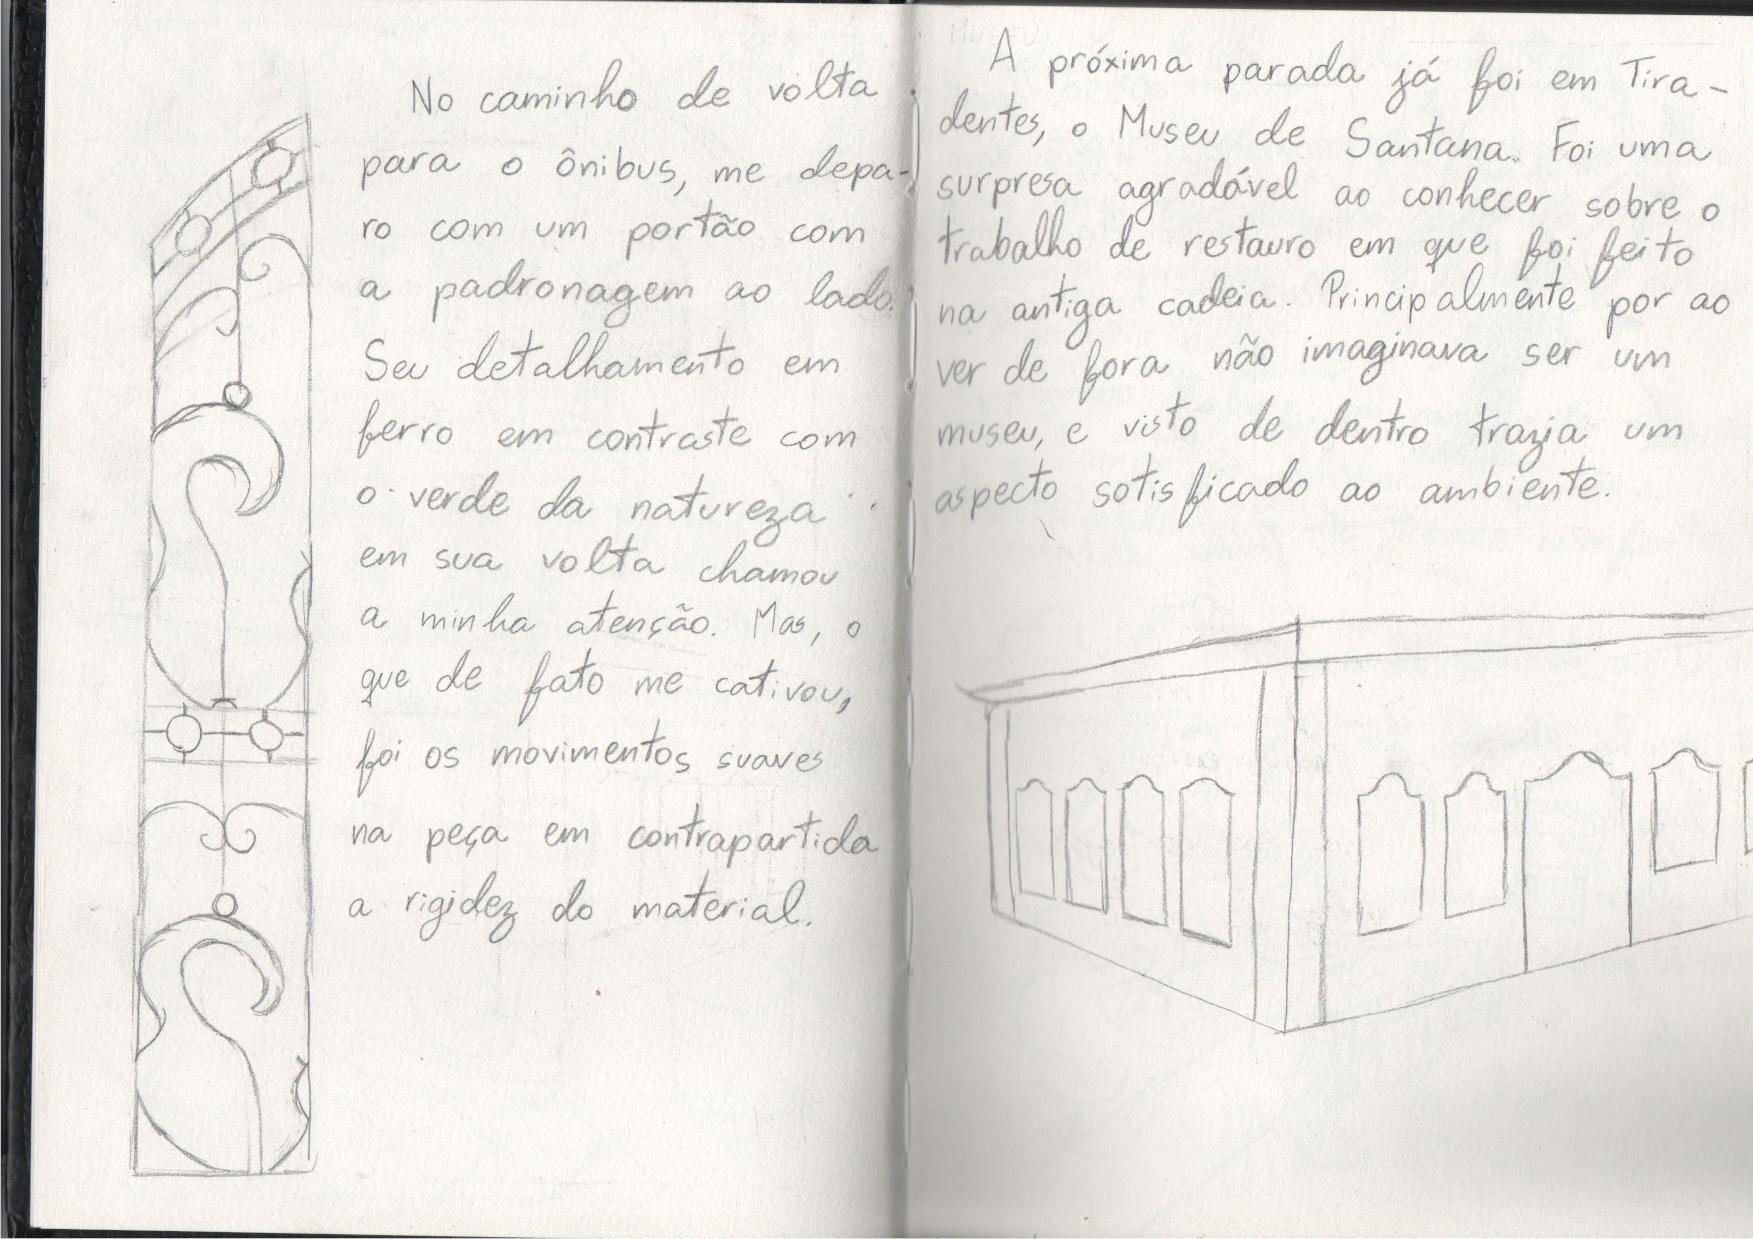 No caminho de volta
para o ônibus, me depa-
ro com um portão com
a padronagem ao lado.
Seu detalhamento em
ferro em contraste com
o verde da natureza
em sua volta chamou
a minha atenção. Mas, o
que de fato me cativou,
foi os movimentos suaves
na peça em contrapartida
a rigidez do material.
A próxima parada já foi em Tira-
dentes, o Museu de Santana. Foi uma
surpresa agradável ao conhecer sobre o
trabalho de restauro em que foi feito
na antiga cadeia. Principalmente por ao
ver de fora não imaginava ser um
museu, e visto de dentro trazia um
aspecto sotisficado ao ambiente.